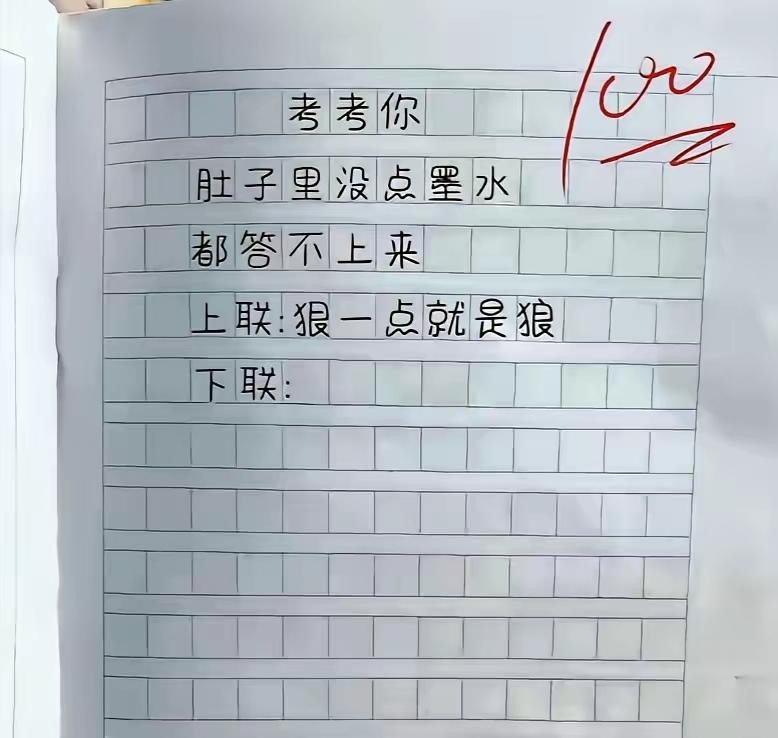 100
考考你
肚子里没点墨水
都答不上来
上联:狠一点就是狼
下联: